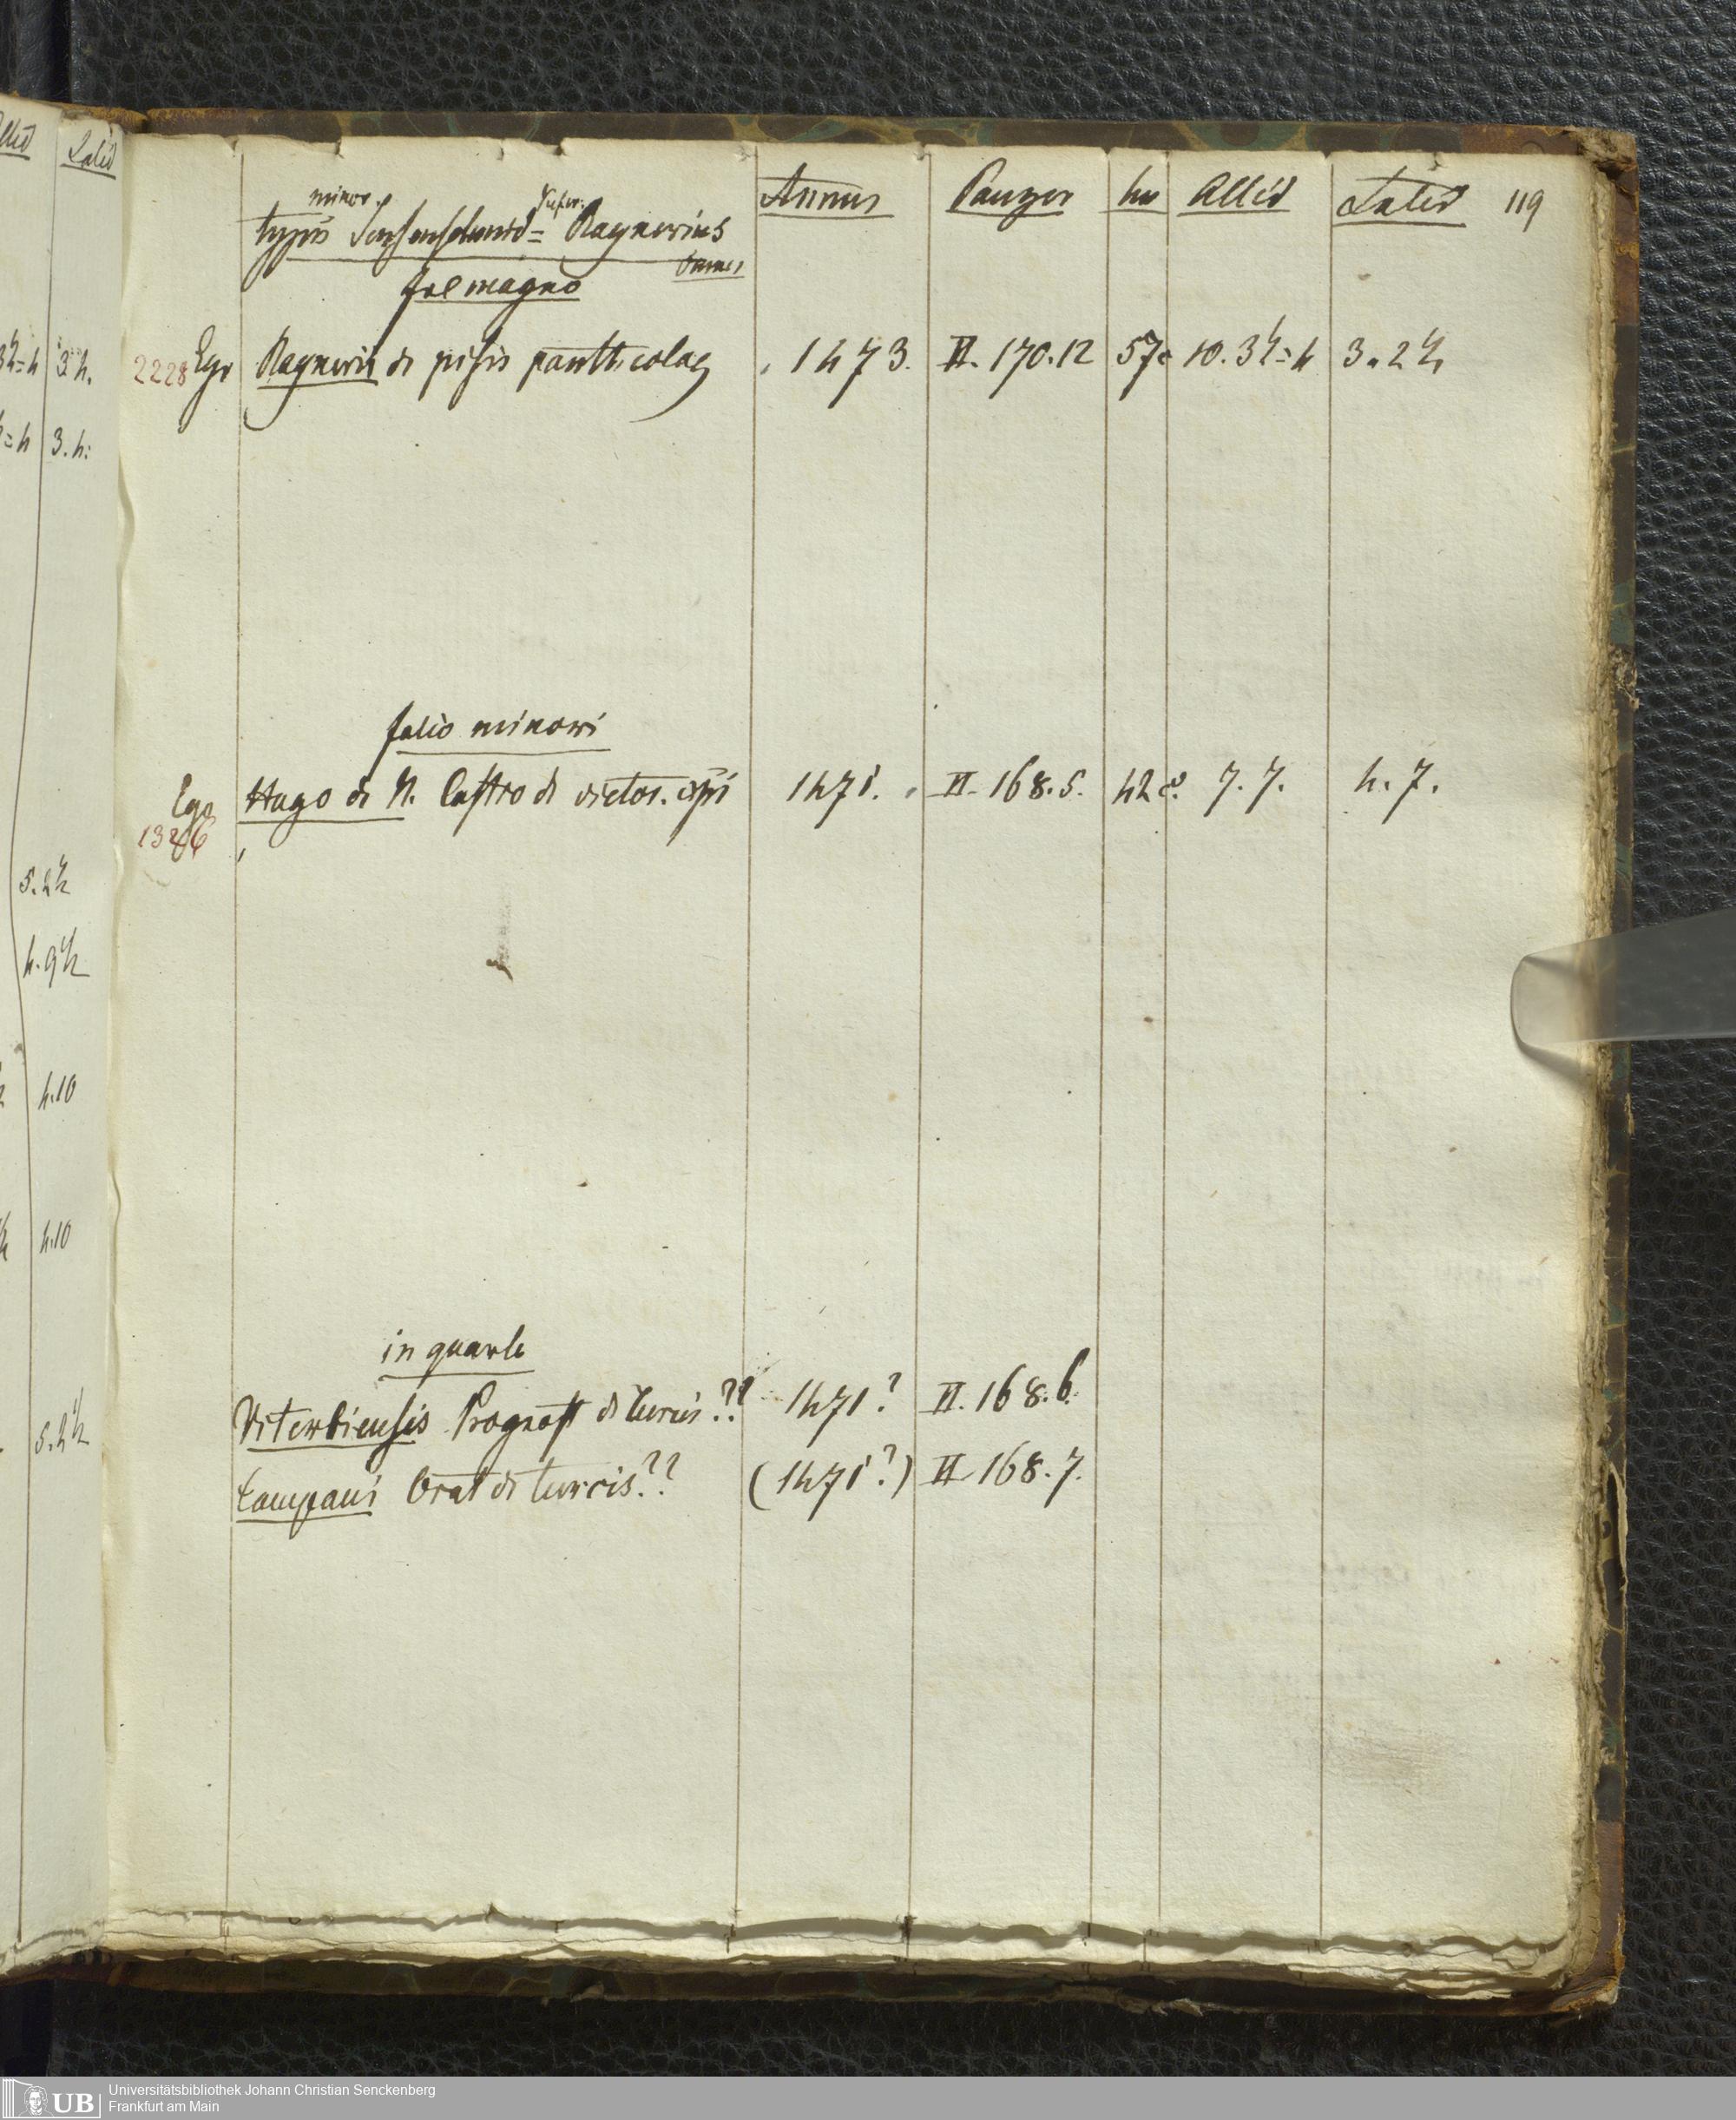 Altid Latid
minor. super.
typus Sensenschmid = Raynerius
omnes
fol magno
Annus Panzer lin Altid Latid 119
2228 Ego Raynerii de pisis pantheolag 1473. II. 170.12 57 c 10.3½=4 3.2½
folio minori
Ego Hugo de N. Castro de victor. xpi 1471. II. 168.5. 42 c. 7.7. 4.7.
1326
in quarto
Viterbiensis Prognost de turcis?? 1471? II. 168.6.
Campani Orat de turcis?? (1471?) II 168.7.
3½=4 3 4.
=4 3.4:
5.2½
4.9½
4.10
4.10
5.2½
UB Universitätsbibliothek Johann Christian Senckenberg
Frankfurt am Main